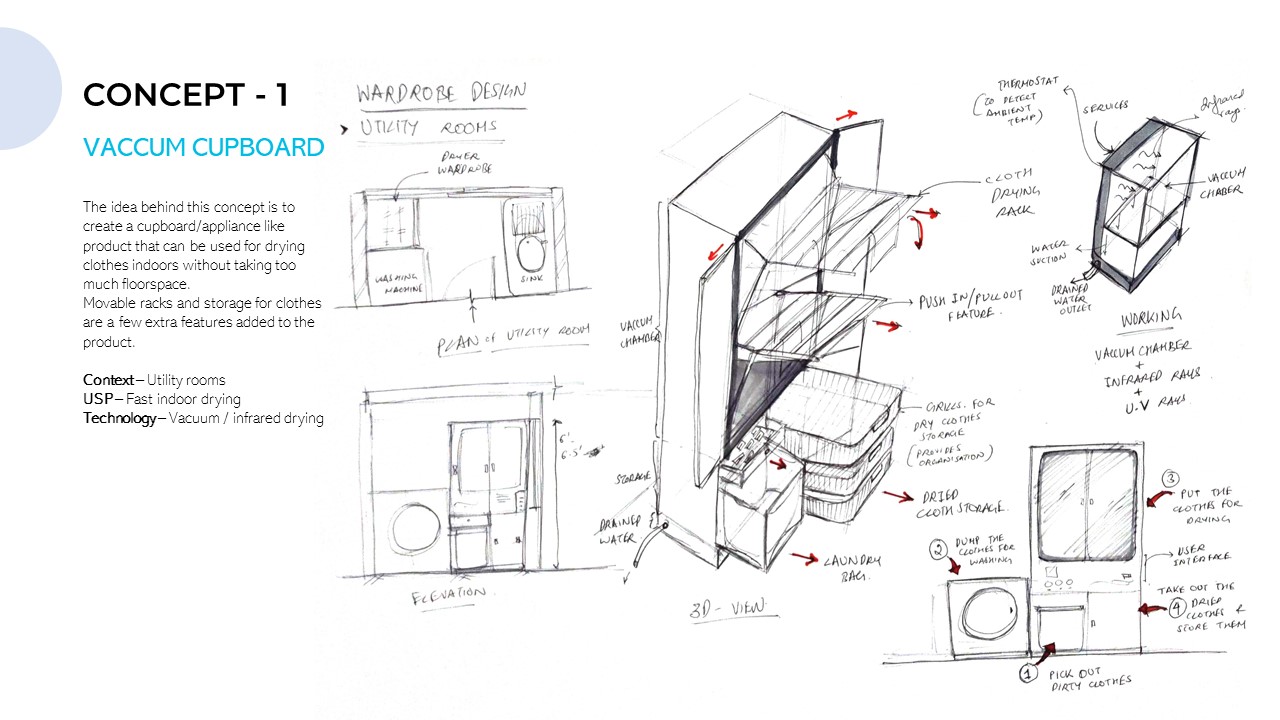 CONCEPT - 1
VACCUM CUPBOARD
The idea behind this concept is to
create a cupboard/appliance like
product that can be used for drying
clothes indoors without taking too
much floorspace.
Movable racks and storage for clothes
are a few extra features added to the
product.
Context– Utility rooms
USP– Fast indoor drying
Technology– Vacuum / infrared drying
WARDROBE DESIGN
UTILITY ROOMS
DRYER
WARDROBE
WASHING
MACHINE
SINK
PLAN of UTILITY ROOM
6'-
6.5'
ELEVATION
VACUUM
CHAMBER
STORAGE
DRAINED
WATER
CLOTH
DRYING
RACK
PUSH IN/PULL OUT
FEATURE.
GRILLS. FOR
DRY CLOTHES
STORAGE
(PROVIDES
ORGANISATION)
DRIED
CLOTH STORAGE.
LAUNDRY
BAG.
3D - VIEW
THERMOSTAT
(TO DETECT
AMBIENT
TEMP)
SERVICES
Infrared
rays.
VACCUM
CHABER
WATER
SUCTION
DRAINED
WATER
OUTLET
WORKING
VACCUM CHAMBER
+
INFRARED RAYS
+
U.V RAYS.
3
PUT THE
CLOTHES FOR
DRYING
USER
INTERFACE
2
DUMP THE
CLOTHES FOR
WASHING
TAKE OUT THE
4 DRIED
CLOTHES &
STORE THEM
1
PICK OUT
DIRTY CLOTHES